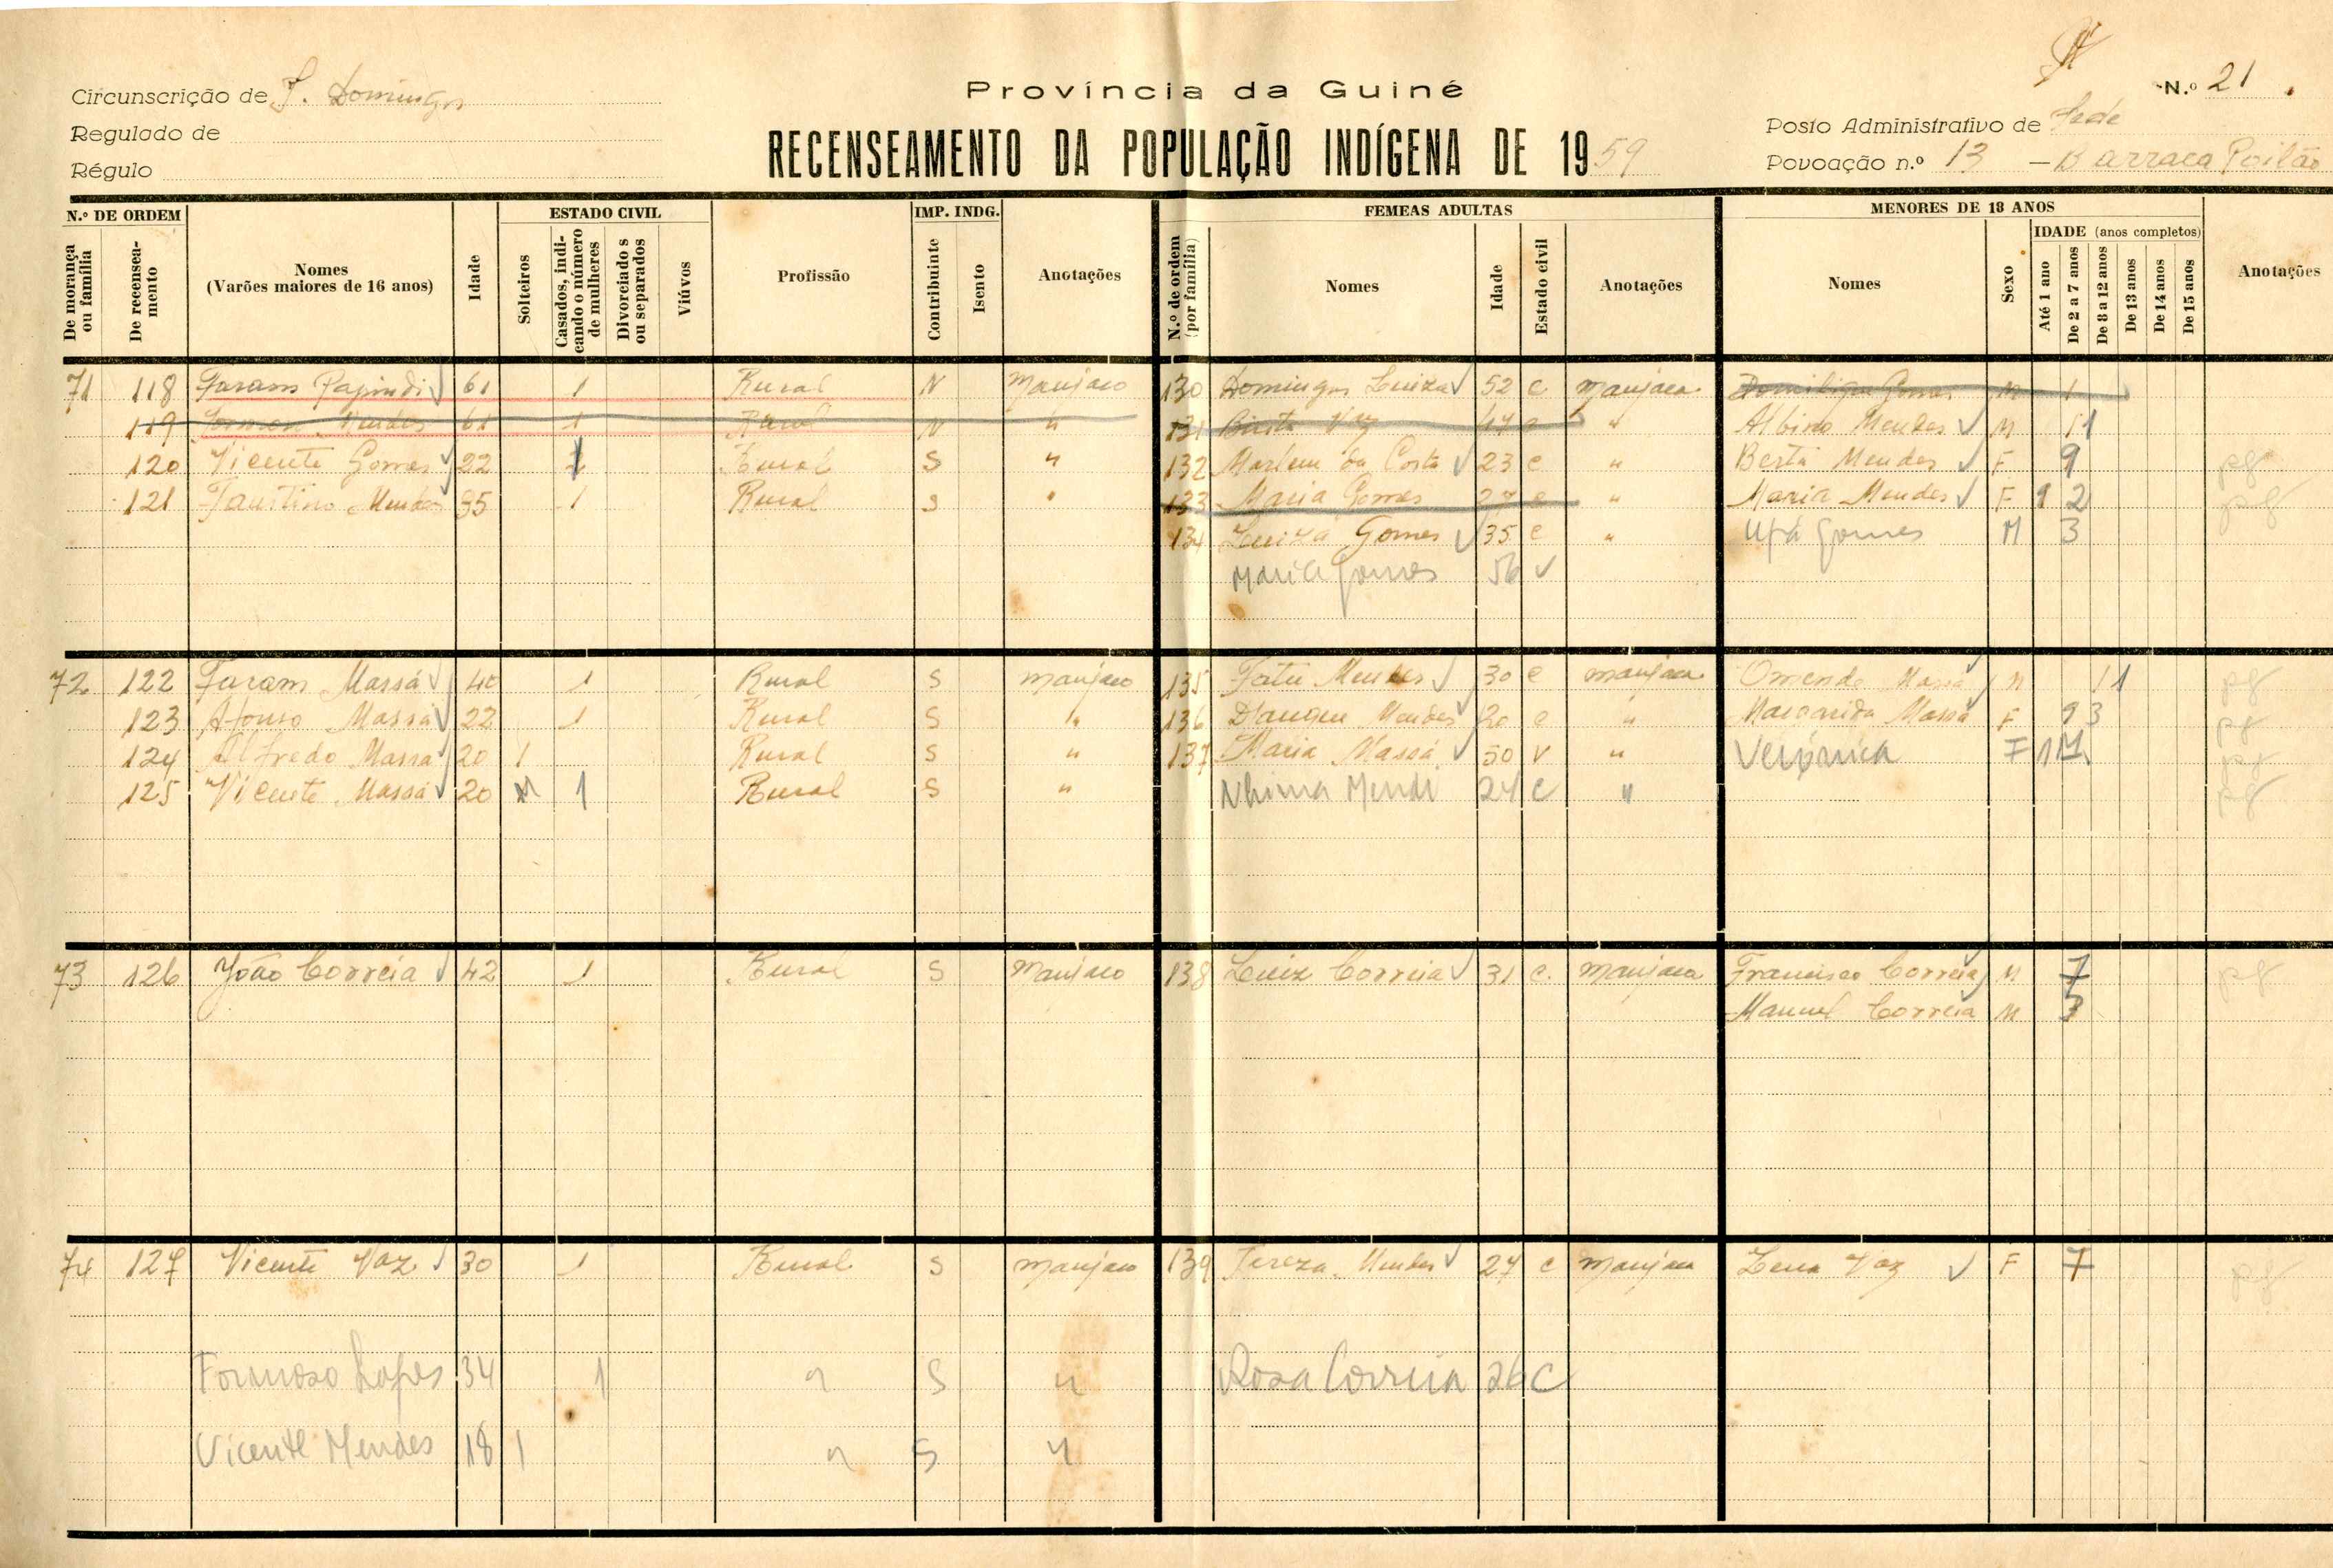 Província da Guiné
N.º 21
Circunscrição de S. Domingos
Regulado de
Régulo
RECENSEAMENTO DA POPULAÇÃO INDÍGENA DE 1959
Posto Administrativo de Sede
Povoação n.º 13 — Barraca Poilão
N.º DE ORDEM
De morança ou família
De recenseamento
Nomes
(Varões maiores de 16 anos)
Idade
ESTADO CIVIL
Solteiros
Casados, indicando o número de mulheres
Divorciados ou separados
Viúvos
Profissão
IMP. INDG.
Contribuinte
Isento
Anotações
FEMEAS ADULTAS
N.º de ordem (por família)
Nomes
Idade
Estado civil
Anotações
MENORES DE 18 ANOS
Nomes
Sexo
IDADE (anos completos)
Até 1 ano
De 2 a 7 anos
De 8 a 12 anos
De 13 anos
De 14 anos
De 15 anos
Anotações
71 118 Faram Papindi 61 1 Rural N Manjaco 130 Domingas Luiza 52 c manjaca Gomes M 1
119 Mendes 61 1 Rural N " 131 Vaz 47 c " Albino Mendes M 11
120 Vicente Gomes 22 1 Rural S " 132 Marlem da Costa 23 c " Berta Mendes F 9 pg
121 Faustino Mendes 35 1 Rural S " 133 Maria Gomes 27 c " Maria Mendes F 2 pg
134 Luiza Gomes 35 c " Upá Gomes M 3
Maria Gomes 56 V
72 122 Faram Massá 40 1 Rural S manjaco 135 Fatu Mendes 30 c manjaca Omende Massá M 11 pg
123 Afonso Massá 22 1 Rural S " 136 Mendes 20 c " Margarida Massá F 3 pg
124 Alfredo Massá 20 1 Rural S " 137 Maria Massá 50 V " Verónica F pg
125 Vicente Massá 20 1 Rural S " Nhima Mendi 24 C " pg
73 126 João Correia 42 1 Rural S Manjaco 138 Luiz Correia 31 c. manjaca Francisco Correia M 7 pg
Manuel Correia M 3
74 127 Vicente Vaz 30 1 Rural S manjaco 139 Tereza Mendes 27 c manjaca Lena Vaz F 7 pg
Formoso Lopes 34 1 " S " Rosa Correia 26 C
Vicente Mendes 18 1 " S "